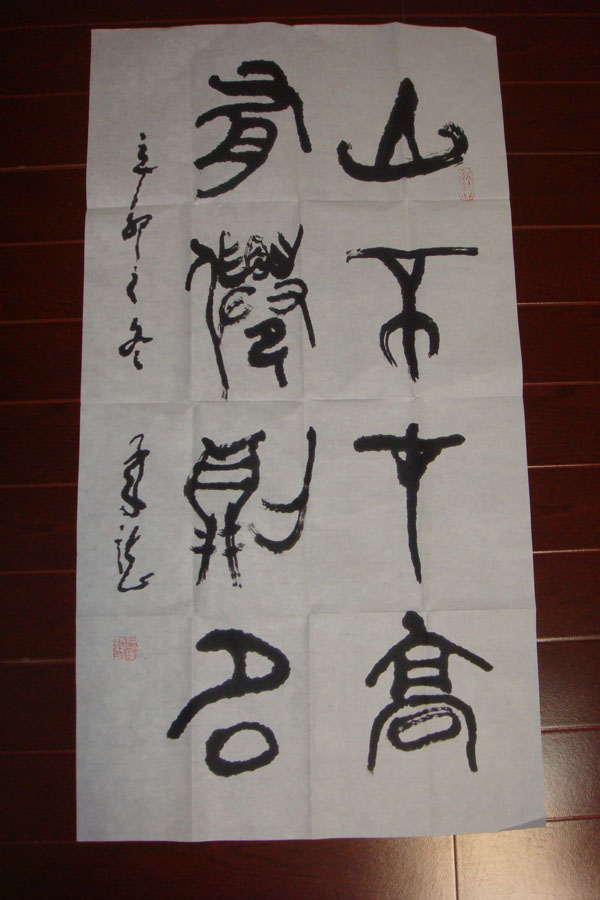 山不在高
有僊則名
辛卯之冬